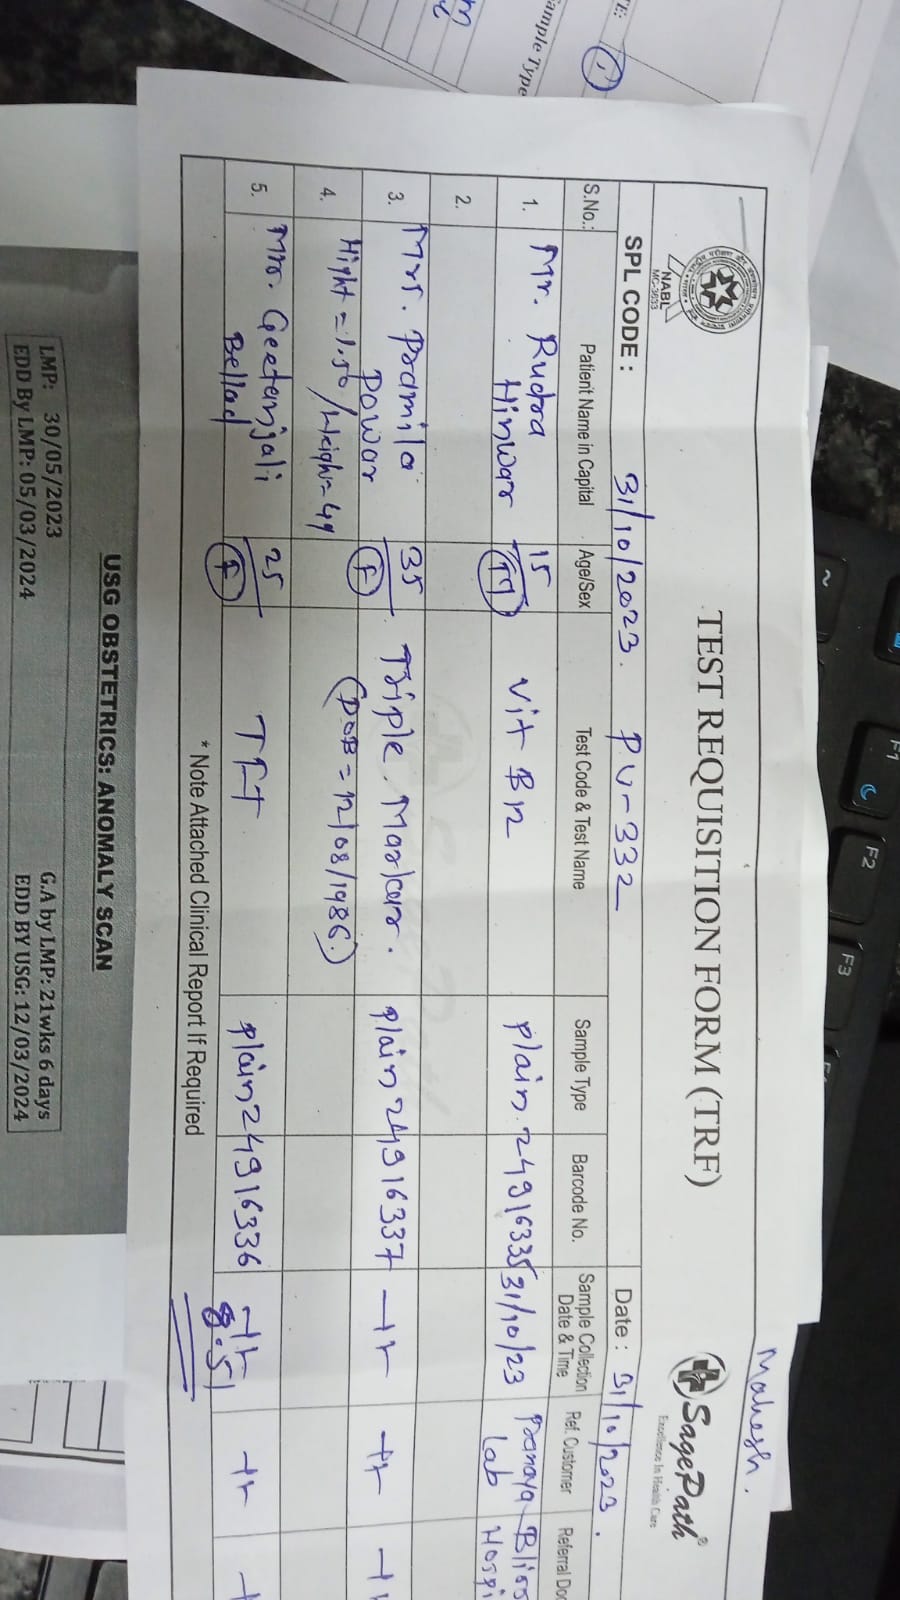 Mahesh.
NABL
MC-3633
TEST REQUISITION FORM (TRF)
SagePath®
Excellence In Health Care
SPL CODE : 31/10/2023. PU-332 Date : 31/10/2023.
S.No.: Patient Name in Capital Age/Sex Test Code & Test Name Sample Type Barcode No. Sample Collection Date & Time Ref. Customer Referral Do
1. Mr. Rudra Hinwar 15 (M) Vit B12 plain 24916335 31/10/23 Pranaya Lab Bliss Hospi
2.
3. Mrs. Pramila Powar 35 (F) Triple Marker. plain 24916337 -11-
4. Hight = 1.50 / Weigh = 49 (DOB = 12/08/1986.)
5. Mrs. Geetanjali Bellad 25 (F) TFT plain 24916336 -11-
8.51
* Note Attached Clinical Report If Required
USG OBSTETRICS: ANOMALY SCAN
LMP: 30/05/2023 G.A by LMP: 21wks 6 days
EDD By LMP: 05/03/2024 EDD BY USG: 12/03/2024
ample Type
TE:
1
~
F1
F2
F3